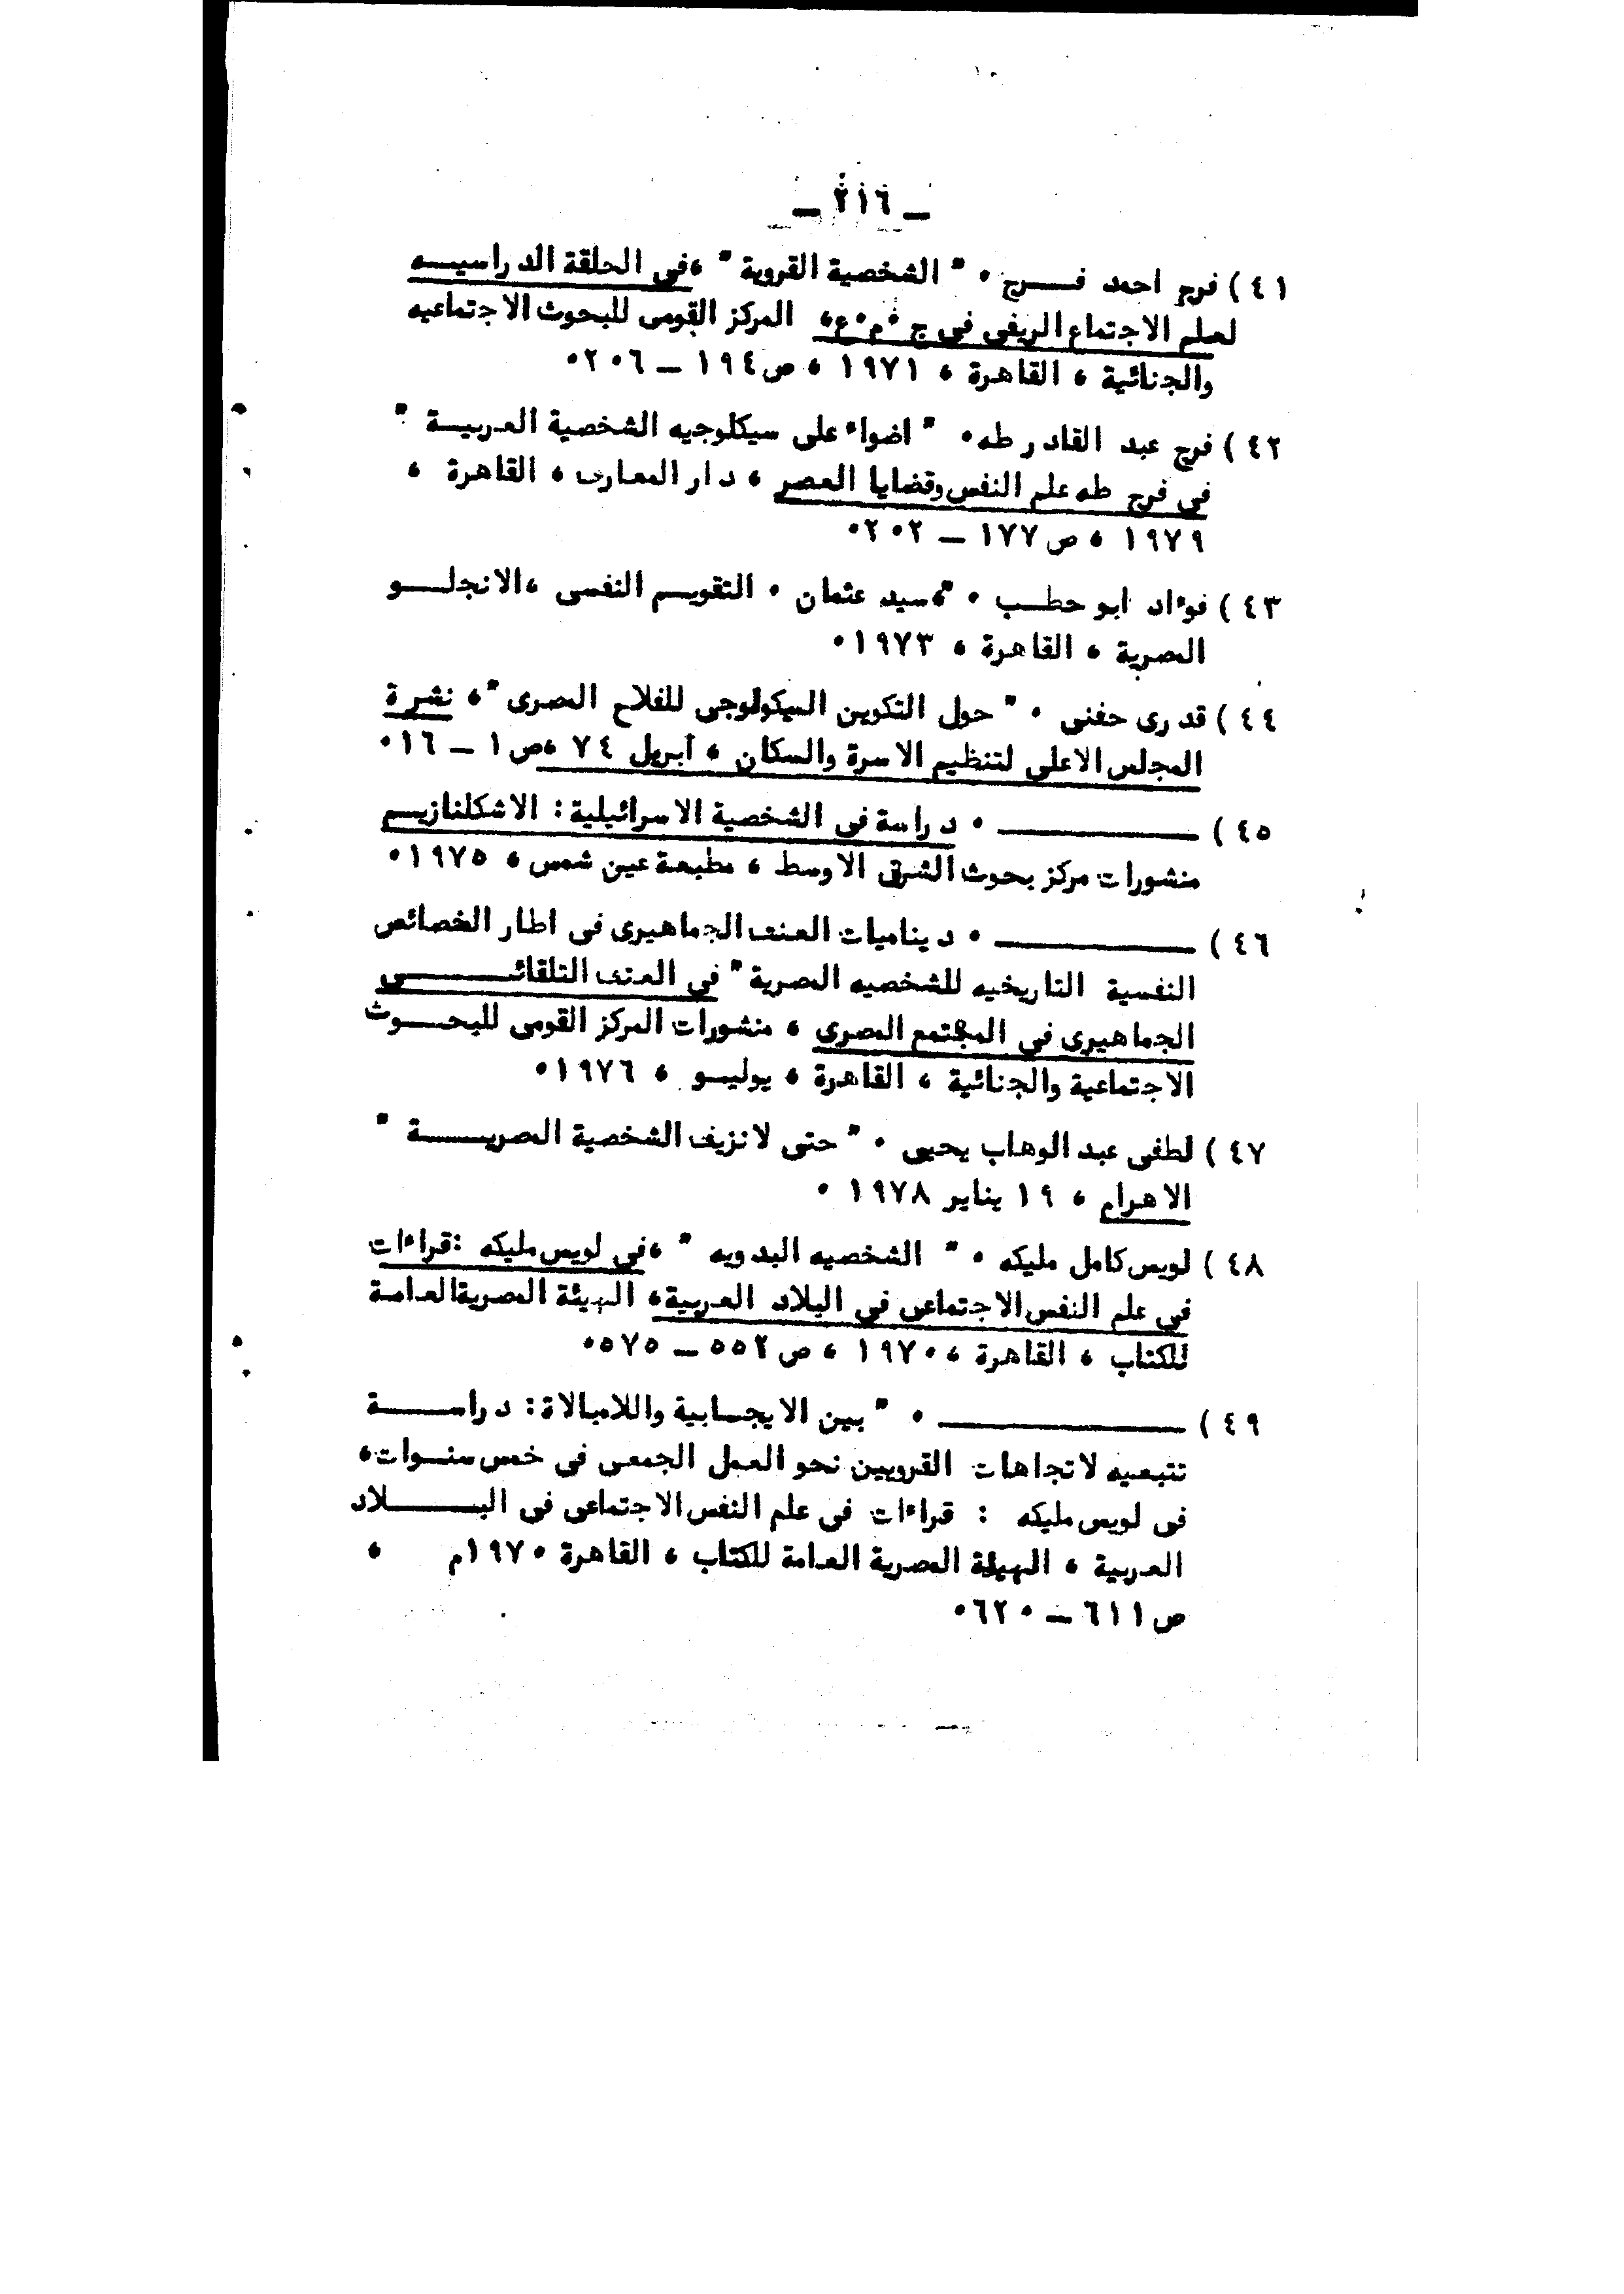 ــ ٢١٦ ــ
٤١) فرج احمد فــــرج ٠ " الشخصية القروية " ،في الحلقة الدراسيــه
لعلم الاجتماع الريفى فى ج ٠م٠ع، المركز القومى للبحوث الاجتماعيه
والجنائية ، القاهرة ، ١٩٧١ ، ص ١٩٤ ــ ٢٠٦٠
٤٢) فرج عبد القادر طه٠ " اضواء على سيكلوجيه الشخصية العربيــة "
فى فرج طه علم النفس وقضايا العصر ، دار المعارف ، القاهرة ،
١٩٧٩ ، ص ١٧٧ ــ ٢٠٢٠
٤٣) فوءاد ابو حطـــب ٠ "،سيد عثمان ٠ التقويــم النفسى ،الانجلــــو
المصرية ، القاهرة ، ١٩٧٣٠
٤٤) قدرى حفنى ٠ " حول التكوين السيكولوجى للفلاح المصرى "، نشرة
المجلس الاعلى لتنظيم الاسرة والسكان ، أبريل ٧٤ ،ص ١ ــ ١٦٠
٤٥) ــــــــــــــــ ٠ دراسة فى الشخصية الاسرائيلية : الاشكلنازيــم
منشورات مركز بحوث الشرق الاوسط ، مطبعة عين شمس ، ١٩٧٥٠
٤٦) ــــــــــــــــ ٠ ديناميات العنف الجماهيرى فى اطار الخصائص
النفسية التاريخيه للشخصيه المصرية " فى العنف التلقائــــــــى
الجماهيرى فى المجتمع المصرى ، منشورات المركز القومى للبحـــوث
الاجتماعية والجنائية ، القاهرة ، يوليــو ، ١٩٧٦٠
٤٧) لطفى عبد الوهاب يحيى ٠ " حتى لا نزيف الشخصية المصريـــــة "
الاهرام ، ١٩ يناير ١٩٧٨ ٠
٤٨) لويس كامل مليكه ٠ " الشخصيه البدويه " ،فى لويس مليكه :قراءات
فى علم النفس الاجتماعى فى البلاد العربية، الهيئة المصرية العامة
للكتاب ، القاهرة ،١٩٧٠ ، ص ٥٥٢ ــ ٥٧٥٠
٤٩) ــــــــــــــــــــ ٠ " بين الايجـابية واللامبالاة : دراســـــة
تتبعيه لاتجاهات القرويين نحو العمل الجمعى فى خمس سنــوات،
فى لويس مليكه : قراءات فى علم النفس الاجتماعى فى البـــــــلاد
العربية ، الهيئة المصرية العامة للكتاب ، القاهرة ١٩٧٠م ،
ص ٦١١ ــ ٦٢٠٠